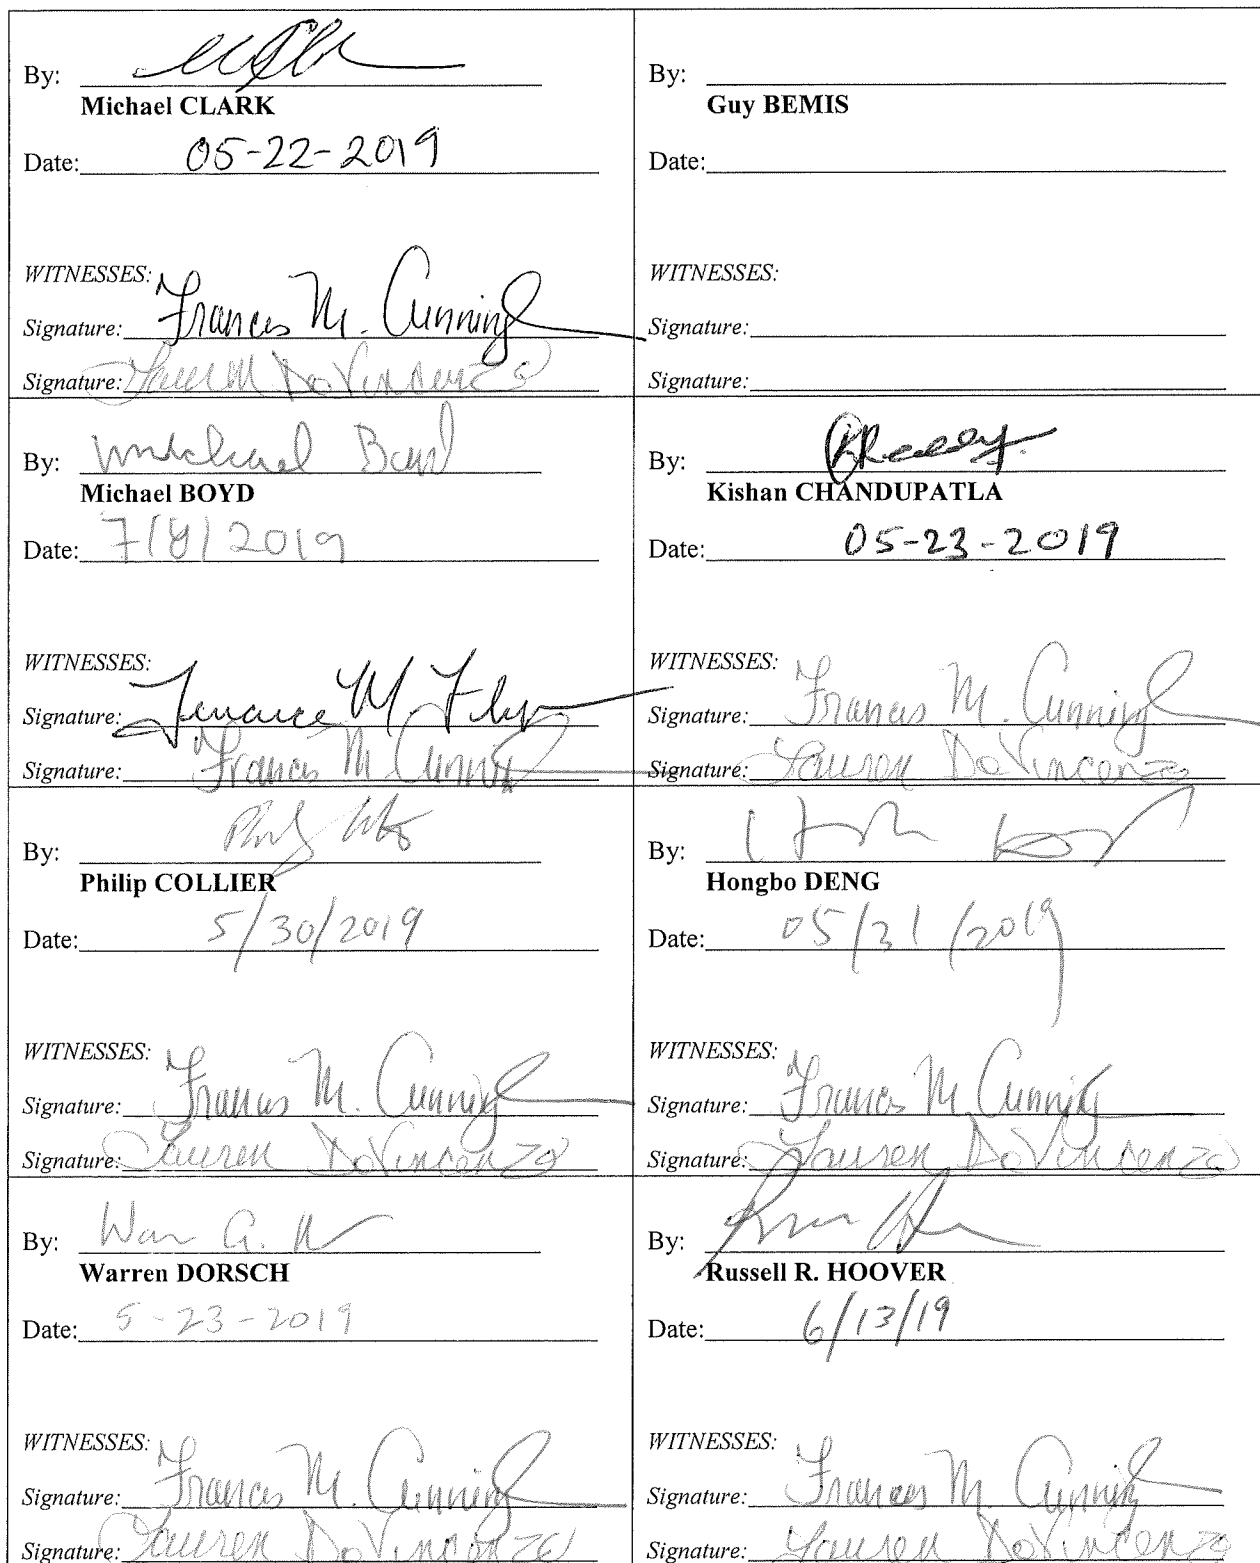 By:
Michael CLARK
Date: 05-22-2019
WITNESSES:
Signature: Frances M. Cunning
Signature: Lauren DoVincenzo
By:
Guy BEMIS
Date:
WITNESSES:
Signature:
Signature:
By: Michael Boyd
Michael BOYD
Date: 2019
WITNESSES:
Signature: M.
Signature: Frances M. Cunning
By:
Kishan CHANDUPATLA
Date: 05-23-2019
WITNESSES:
Signature: Frances M. Cunning
Signature: Lauren DoVincenzo
By:
Philip COLLIER
Date: 5/30/2019
WITNESSES:
Signature: Frances M. Cunning
Signature: Lauren DoVincenzo
By:
Hongbo DENG
Date: 05/31/2019
WITNESSES:
Signature: Frances M. Cunning
Signature: Lauren DoVincenzo
By:
Warren DORSCH
Date: 5-23-2019
WITNESSES:
Signature: Frances M. Cunning
Signature: Lauren DoVincenzo
By:
Russell R. HOOVER
Date: 6/13/19
WITNESSES:
Signature: Frances M. Cunning
Signature: Lauren DoVincenzo